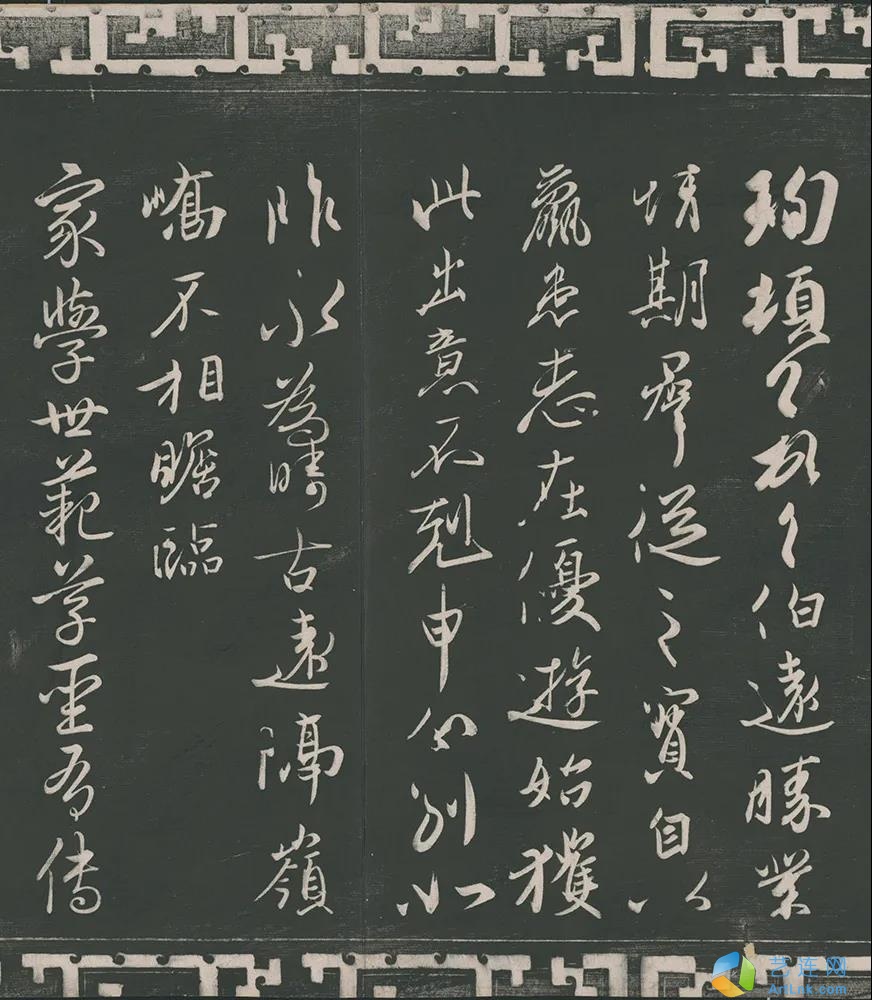 珣頓首頓首伯遠勝業
情期羣從之寶自以
羸患志在優遊始獲
此出意不剋申分別如
昨永為疇古遠隔嶺
嶠不相瞻臨
家學世範草聖有傳
艺连网
ArtLnk.com